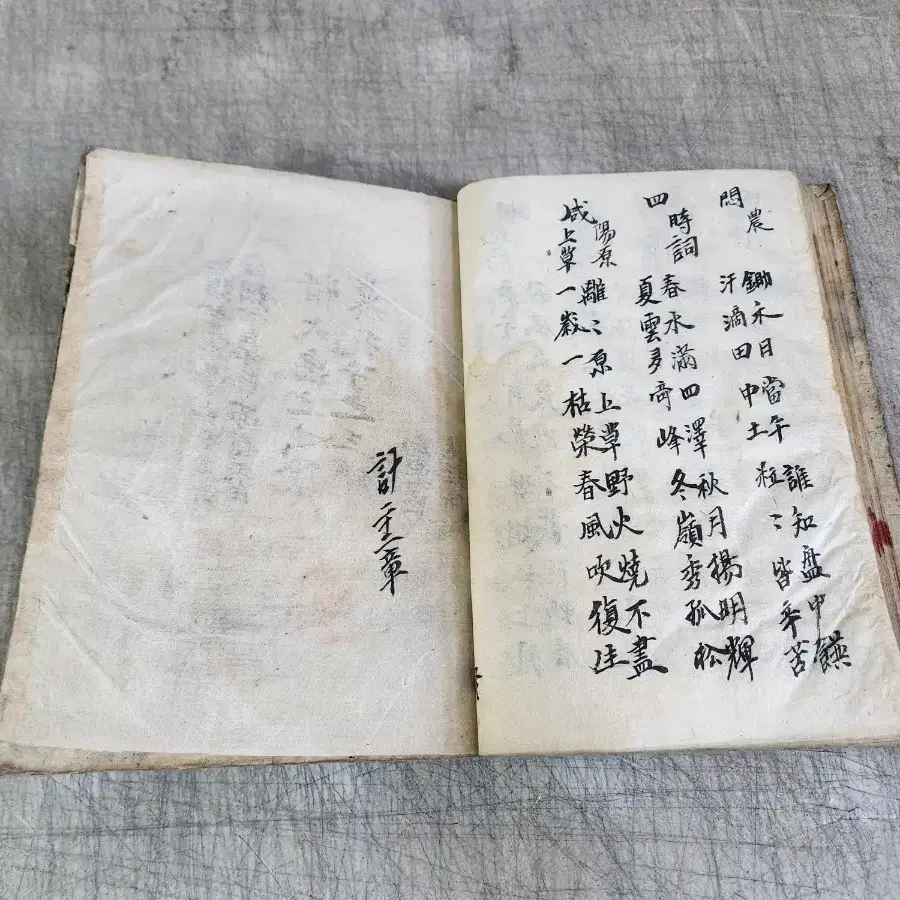 農
鋤禾日當午誰知盤中
汗滴田中土粒〻皆辛苦
四時詞
春水滿四澤秋月揚明輝
夏雲多奇峰冬嶺秀孤松
咸陽原上草
離〻原上草野火燒不盡
一歲一枯榮春風吹復
計章